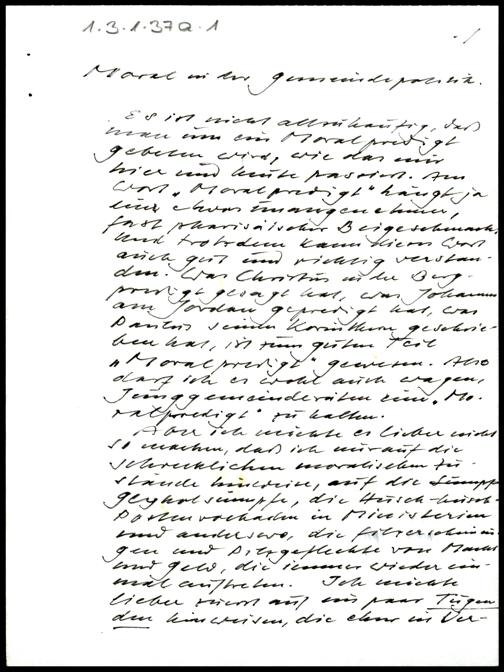 1.3.1.37a.1
Moral in der Gemeindepolitik.
Es ist nicht allzuhäufig, daß
man um ein Moralpredigt
gebeten wird, wie das mir
hier und heute passiert. Am
Wort „Moralpredigt" hängt ja
ein etwas unangenehmer,
fast pharisäischer Beigeschmack.
Und trotzdem kann dieses Wort
auch gut und richtig verstan-
den. Was Christus in der Berg-
predigt gesagt hat, was Johannes
am Jordan gepredigt hat, was
Paulus seinen Korinthern geschrie-
ben hat, ist zum guten Teil
„Moralpredigt" gewesen. Also
darf ich es wohl auch wagen,
Junggemeinderäten eine „Mo-
ralpredigt" zu halten.
Aber ich möchte es lieber nicht
so machen, daß ich nur auf die
schrecklichen moralischen Zu-
stände hinweise, auf die Sümpfe
Glykolsümpfe, die Husch-husch-
in Ministerien
und anderswo, die
gen und Pilzgeflechte von Macht
und Geld, die immer wieder ein-
mal auftreten. Ich möchte
lieber zuerst auf ein paar Tugen
den hinweisen, die eher in Ver-